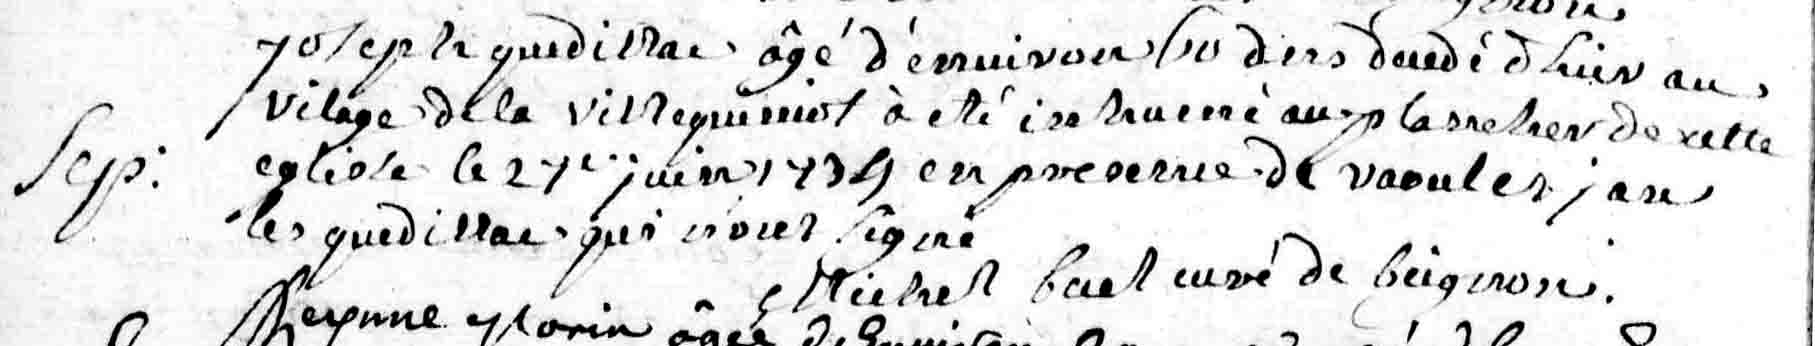 joseph quedillac âgé d'environ 60 ans decedé d'hier au
vilage de la villegueniot à eté inhumé au plancher de cette
Sep: eglise le 27e juin 1734 en presence de raoul et jan
les quedillac qui n'ont signé
Michel buel curé de beignon.
Morin âgée